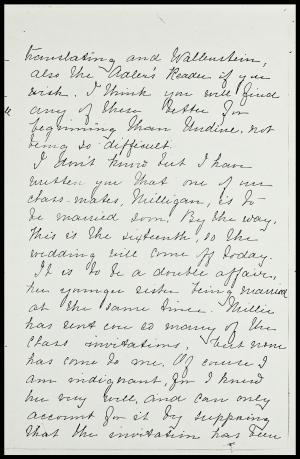 translating and Wallenstein,
also the Adler's Reader if you
wish. I think you will find
any of these better for
beginning than Undine, not
being so difficult.
I don't know but I have
written you that one of our
class-mates, Milligan, is to
be married soon. By the way,
this is the sixteenth, so the
wedding will come off today.
It is to be a double affair,
her younger sister being married
at the same time. Millie
has sent out so many of the
class invitations, but none
has come to me. Of course I
am indignant, for I knew
her very well, and can only
account for it by supposing
that the invitation has been